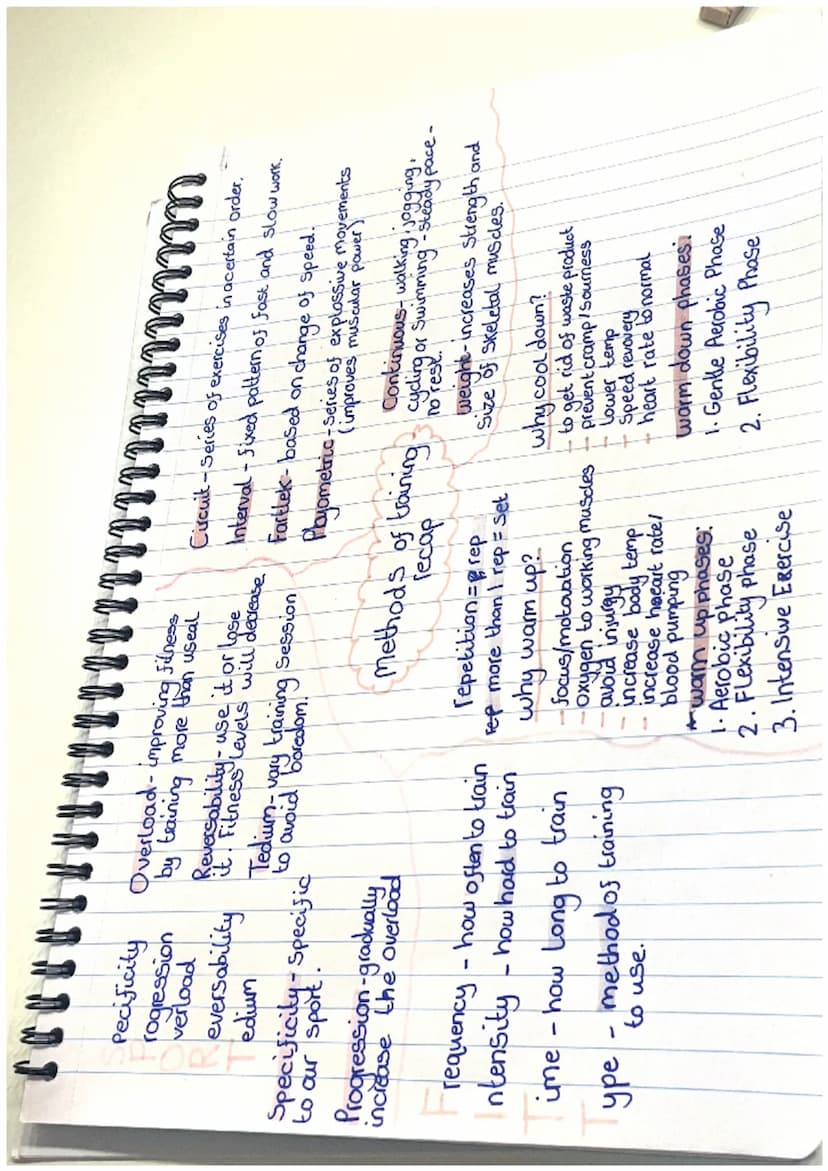 SPecificity
PRogression
Overload
Reversability
Tedium
Specificity - Specific
to our sport.
Progression - gradually
increase the overload
Overload - improving fitness
by training more than useal
Reversability - use it or lose
it. Fitness levels will decrease
Tedium - vary training session
to avoid boredom.
Circuit - Series of exercises in a certain order.
Interval - fixed pattern of fast and slow work.
Fartlek - based on change of speed.
Playometric - series of explossive movements
(improves muscular power)
Continuous - walking, jogging,
cycling or swimming - steady pace -
no rest.
Weight - increases strength and
size of skeletal muscles.
Methods of training
recap
Frequency - how often to train
Intensity - how hard to train
Time - how long to train
Type - method of training
to use.
repetition = rep
rep more than 1 rep = set
Why warm up?
- focus/motavation
- oxygen to working muscles
- avoid injurgy
- increase body temp
- increase heart rate/
blood pumping
warm up phases:
1. Aerobic phase
2. Flexibility phase
3. Intensive Exercise
Why cool down?
- to get rid of waste product
- prevent cramp/soarness
- lower temp
- speed revovery
- heart rate to normal
warm down phases:
1. Gentle Aerobic Phase
2. Flexibility Phase